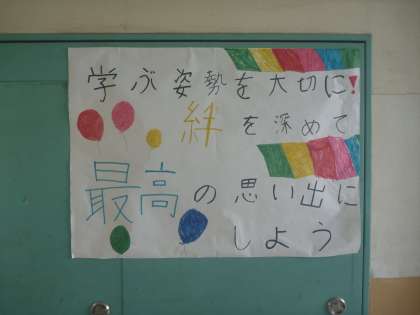 学ぶ姿勢を大切に!
絆を深めて
最高の思い出に
しよう